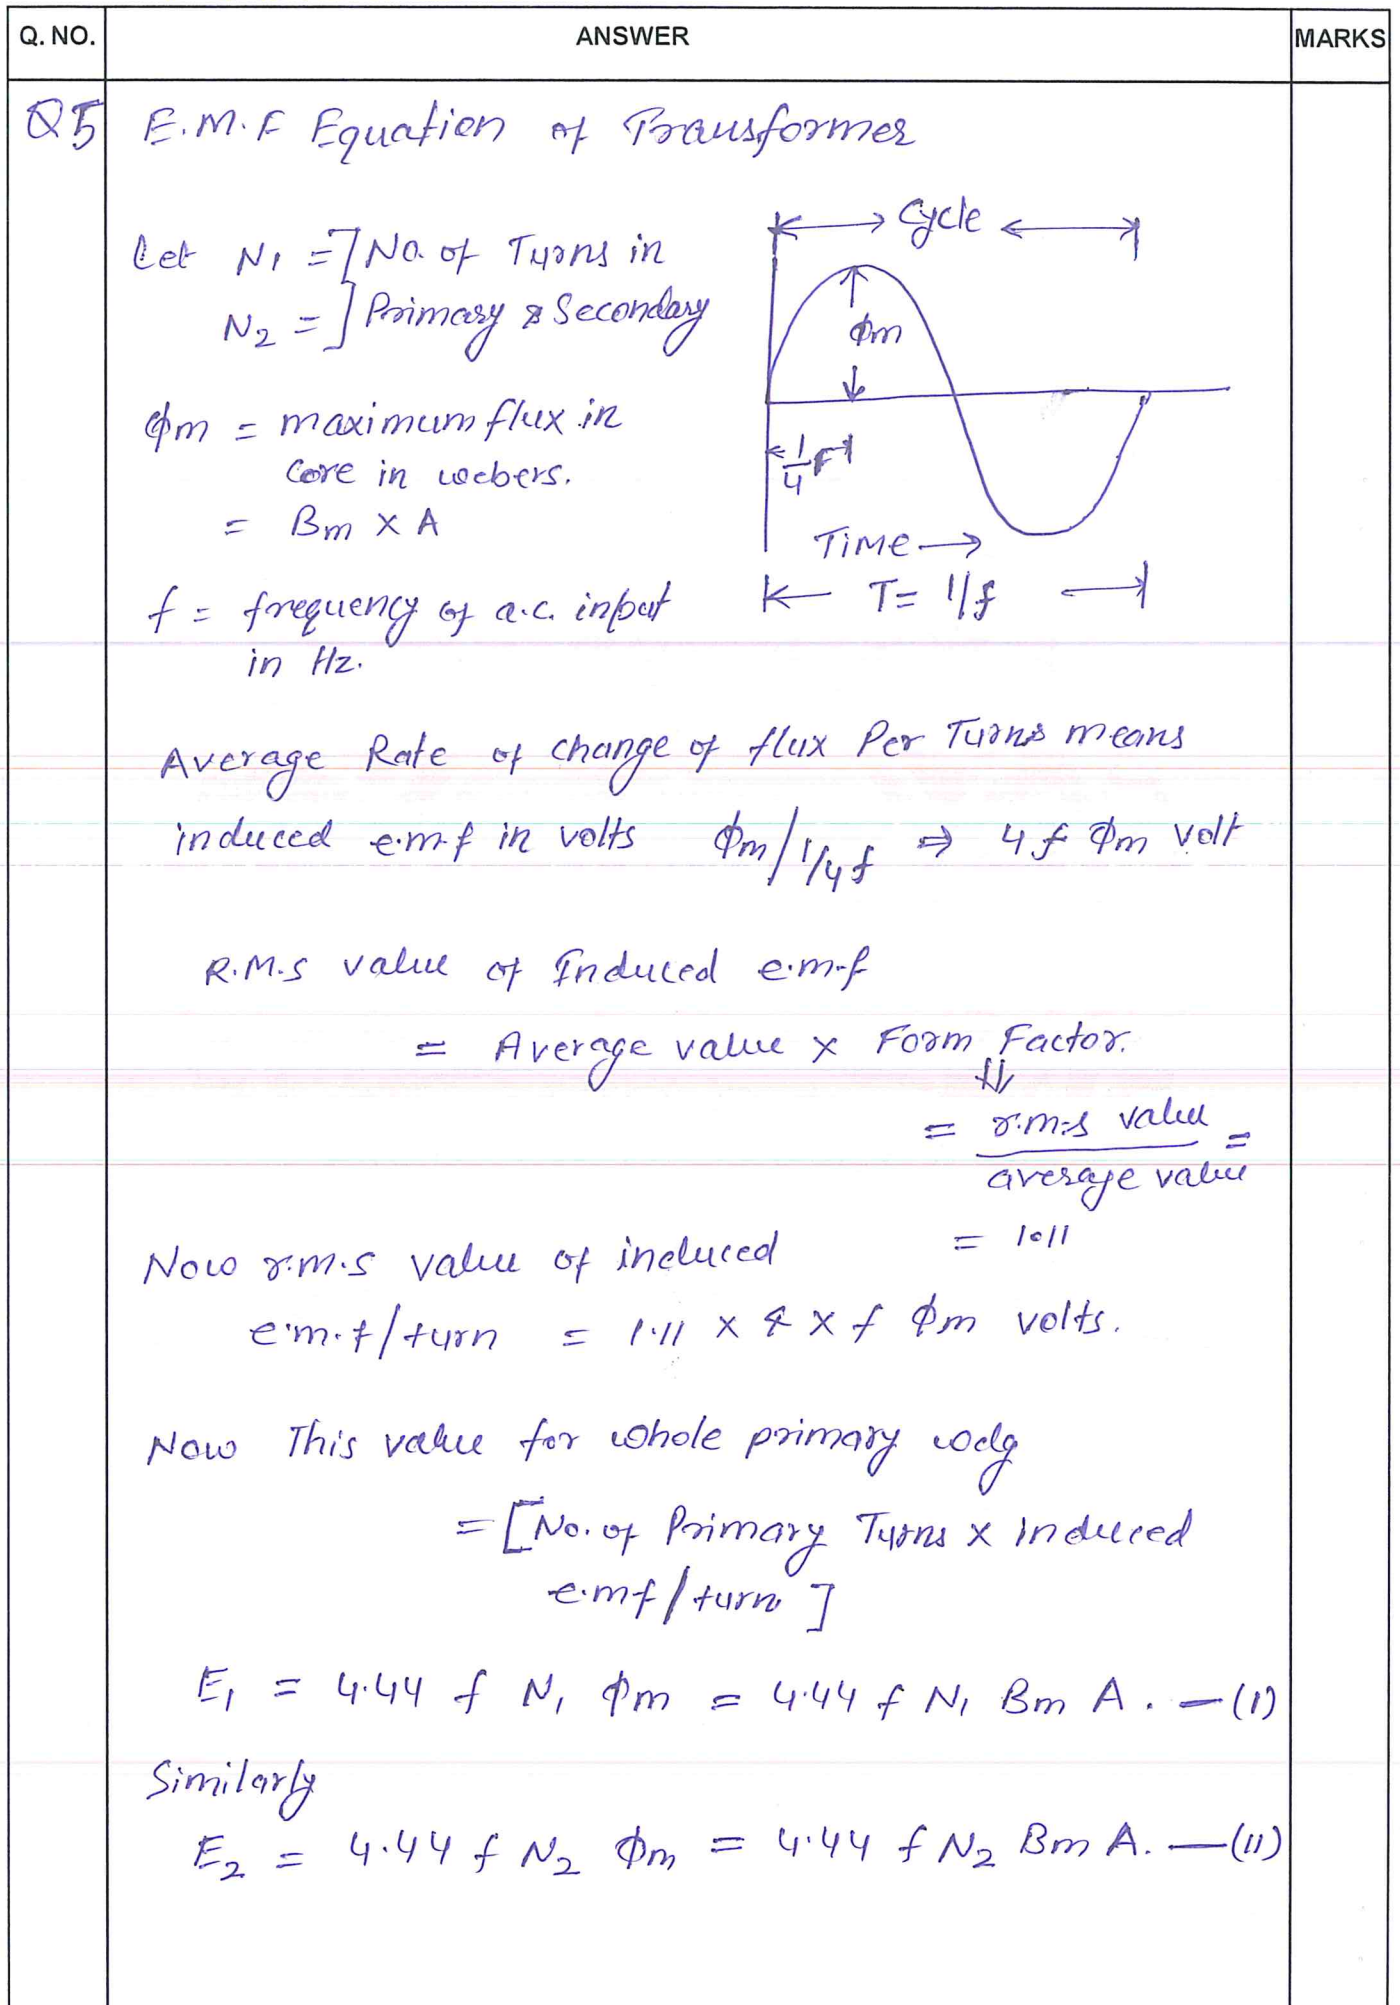 Q. NO. ANSWER MARKS
Q5 E.M.F Equation of Transformer
← → Cycle ← →
Let N1 = ] No. of Turns in
N2 = ] Primary & Secondary
ϕm
ϕm = maximum flux in
core in webers.
= Bm × A
1/4 F
TIME →
f = frequency of a.c. input
in Hz.
← T = 1/f →
Average Rate of change of flux Per Turns means
induced e.m.f in volts ϕm / 1/4f ⇒ 4 f ϕm volt
R.M.S value of Induced e.m.f
= Average value × Form Factor.
⇓
= r.m.s value / average value =
= 1.11
Now r.m.s value of induced
e.m.f/turn = 1.11 × 4 × f ϕm volts.
Now This value for whole primary wdg
= [ No. of Primary Turns × induced
e.mf / turn ]
E1 = 4.44 f N1 ϕm = 4.44 f N1 Bm A. — (I)
Similarly
E2 = 4.44 f N2 ϕm = 4.44 f N2 Bm A. — (II)